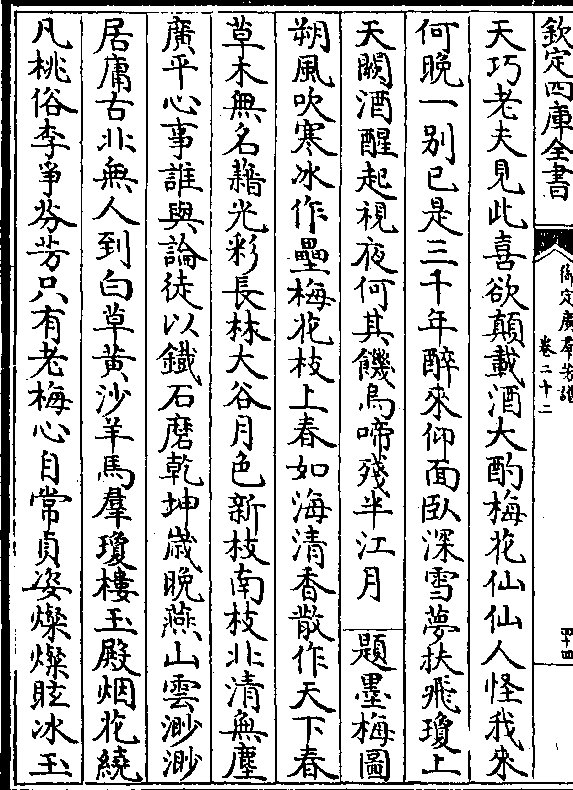 欽定四庫全書
御定廣羣芳譜
卷二十二
四十四
天巧老夫見此喜欲顛載酒大酌梅花仙仙人怪我來
何晚一别已是三千年醉來仰面臥深雪夢扶飛瓊上
天闕酒醒起視夜何其饑烏啼殘半江月 題墨梅圖
朔風吹寒冰作壘梅花枝上春如海清香散作天下春
草木無名藉光彩長林大谷月色新枝南枝北清無塵
廣平心事誰與論徒以鐵石磨乾坤歲晚燕山雲渺渺
居庸古北無人到白草黄沙羊馬羣瓊樓玉殿烟花繞
凡桃俗李爭芬芳只有老梅心自常貞姿燦燦眩冰玉